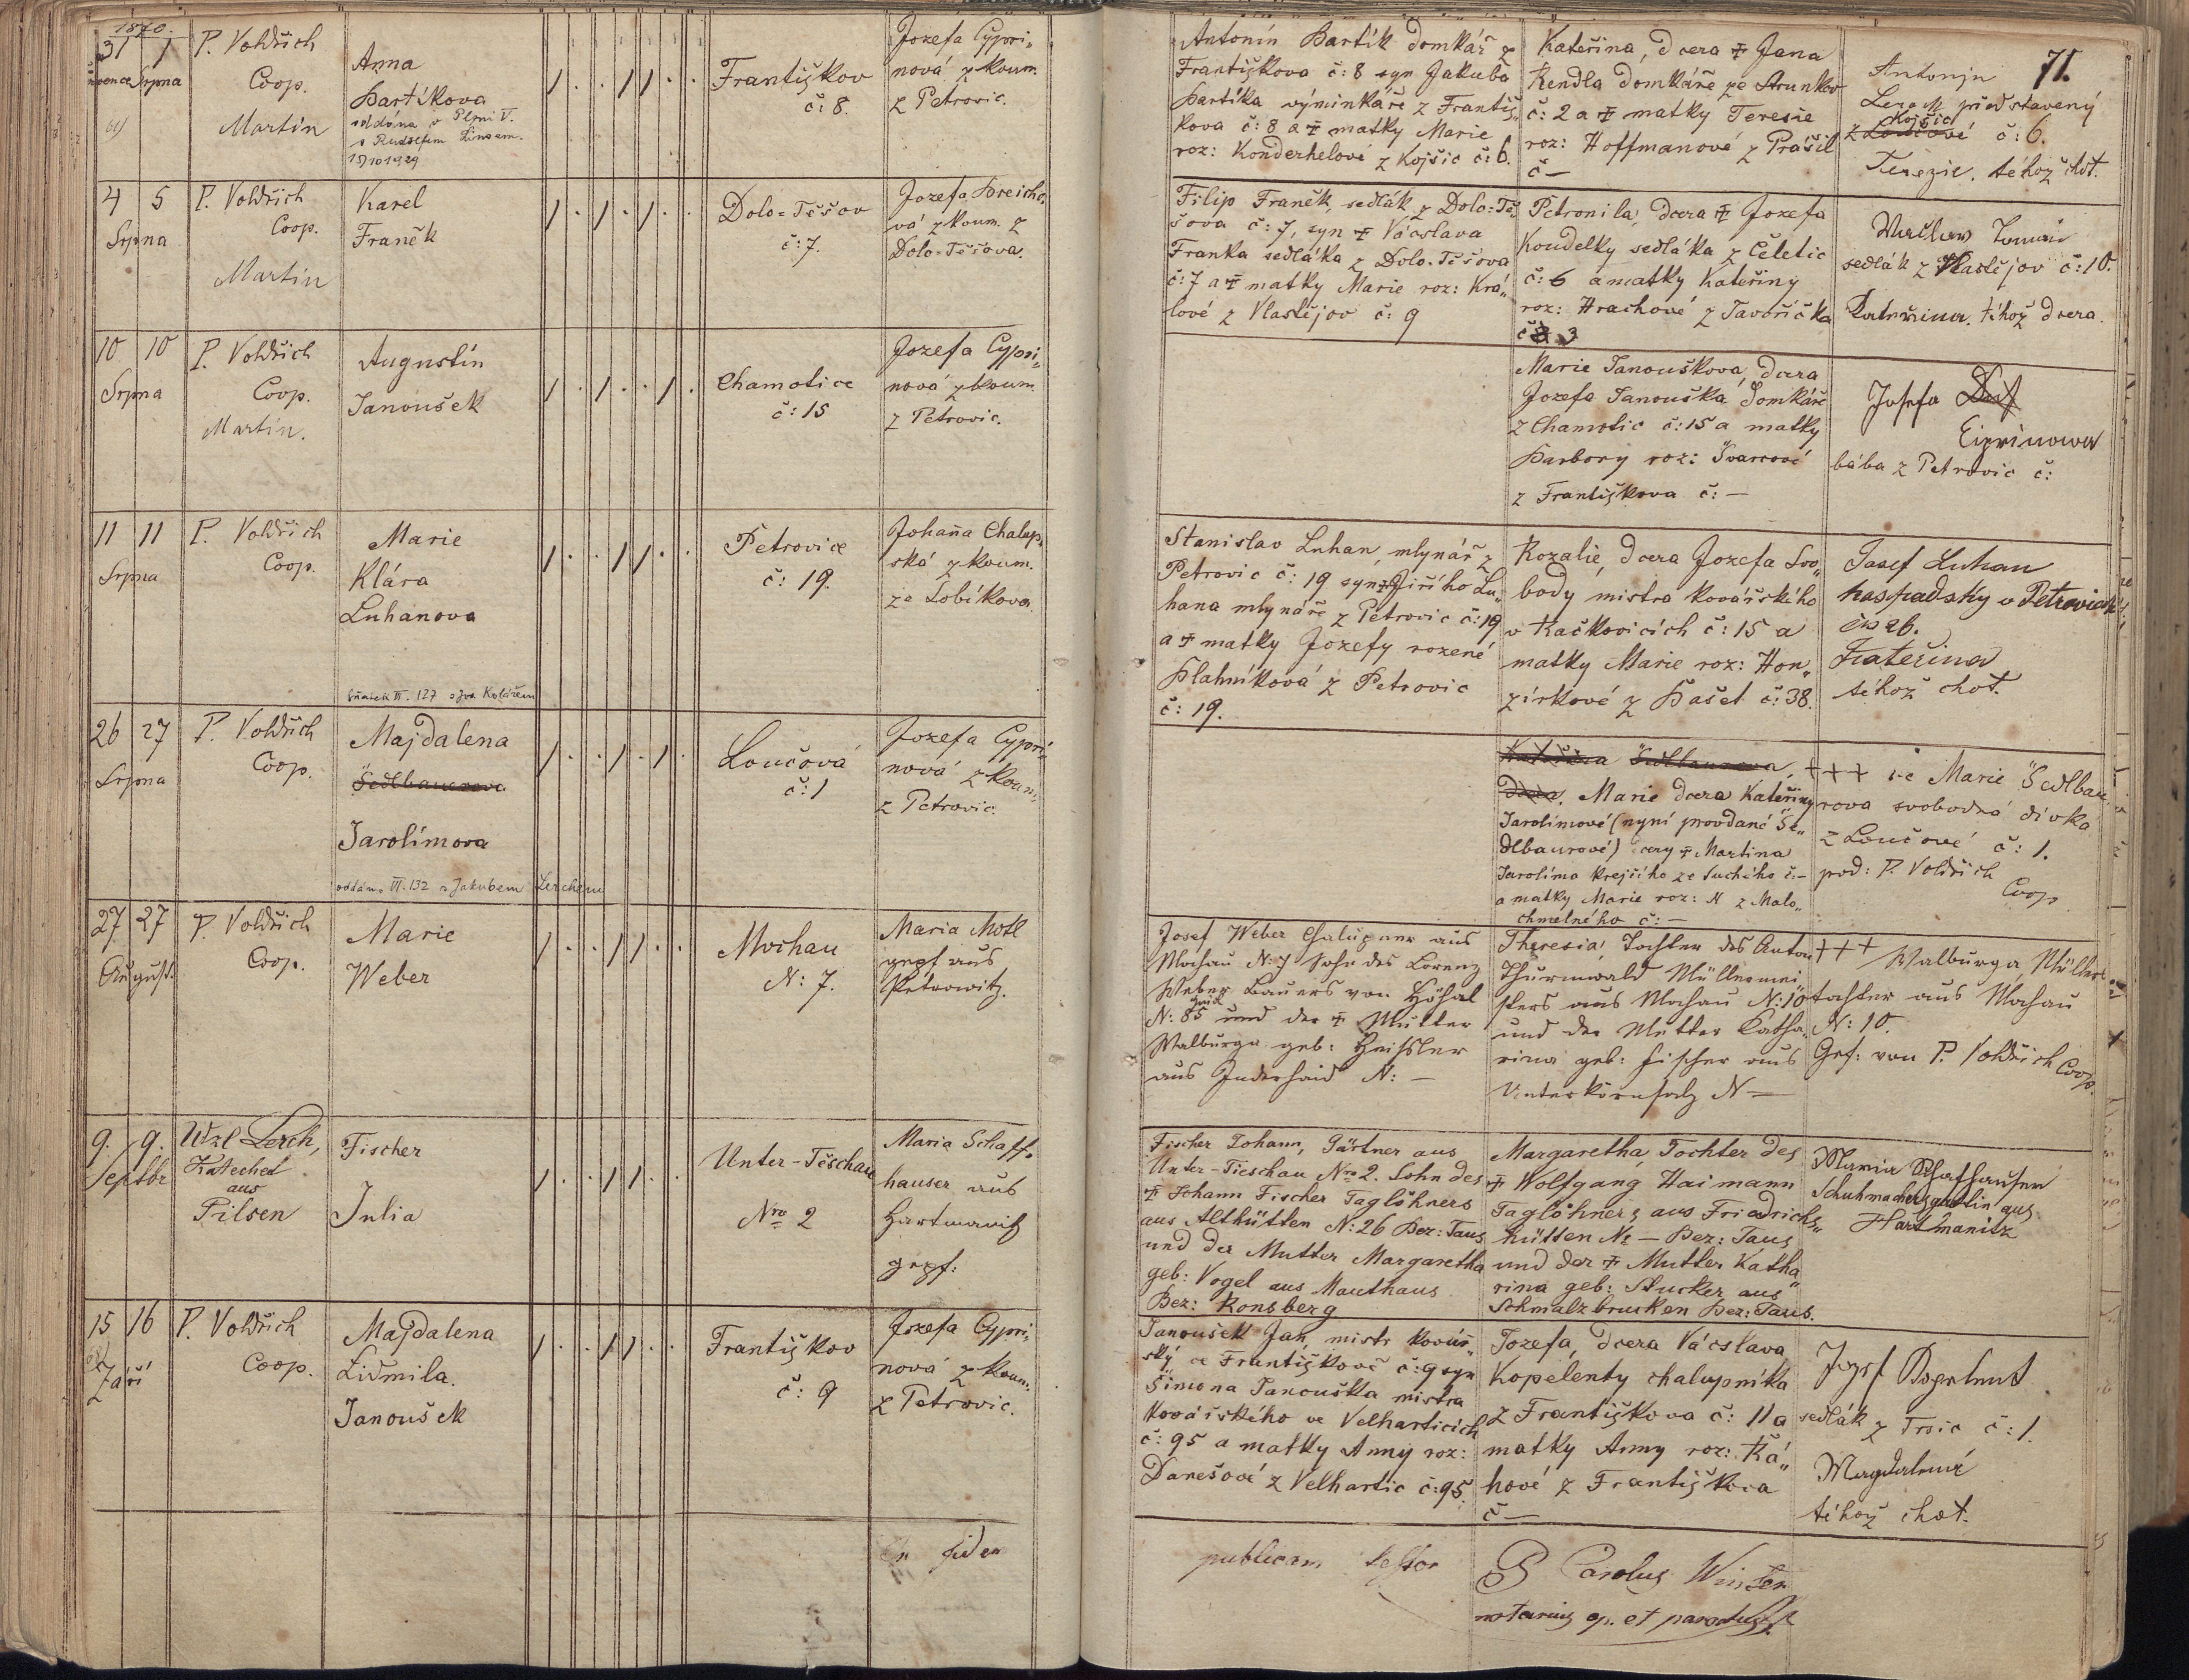 1870.
31 1
července Srpna
P. Voldřich
Coop.
Martin
Anna
Bartíkova
oddána v Plzni V.
s Rudolfem
1/. ./1. .
Františkov
č: 8.
Jozefa Cypri„
nová zkoum.
z Petrovic.
Antonín Bartík domkář z
Františkova č: 8 syn Jakuba
Bartíka výminkáře z Františ„
kova č: 8 a ✝ matky Marie
roz: Konderhelové z Kojšic č: 6.
Kateřina, dcera ✝ Jana
Kendla domkáře ze Strunkov
č: 2 a ✝ matky Teresie
roz: Hoffmanové z Prášil
č —
71.
Antonjn
představený
Kojšic
z Loučové č: 6.
Terezie, téhož choť.
4 5
Srpna
P. Voldřich
Coop.
Martin
Karel
Franěk
Dolo=Těšov
č: 7.
Jozefa Breicho„
vá zkoum. z
Dolo-Těšova.
Filip Franěk, sedlák z Dolo=Tě„
šova č: 7, syn ✝ Vácslava
Franka sedláka z Dolo-Těšova
č: 7 a ✝ matky Marie roz: Krá„
lové z Vlastějov č: 9
Petronila, dcera ✝ Jozefa
Koudelky sedláka z Čeletic
č: 6 a matky Kateřiny
roz: Hrachové z Javoříčka
č 3
Waclaw
sedlák z Vlastějov č: 10.
Kateřina, téhož dcera.
10 10
Srpna
P. Voldřich
Coop.
Martin.
Augustin
Janoušek
Chamotice
č: 15
Jozefa Cypri„
nová zkoum.
z Petrovic.
Marie Janoušková, dcera
Jozefa Janouška domkáře
z Chamotic č: 15 a matky
Barbory roz: Švarcové
z Františkova č: —
Josefa
Ciprinowa
bába z Petrovic č:
11 11
Srpna
P. Voldřich
Coop.
Marie
Klára
Luhanova
sňatek III. 127 s Jos. Kolářem
Petrovice
č: 19.
Johana Chalup„
ská zkoum.
ze Sobíkova.
Stanislav Luhan, mlynář z
Petrovic č: 19 syn ✝ Jiřího Lu„
hana mlynáře z Petrovic č: 19
a ✝ matky Jozefy rozené
Blahníková z Petrovic
č: 19.
Rozalie, dcera Jozefa Svo„
body mistra kovářského
v Kačkovicích č: 15 a
matky Marie roz: Hon„
zírkové z Bašet č: 38.
Josef Luhan
haspadsky v Petrovicich
čis 26.
Kateřina
téhož choť.
26 27
Srpna
P. Voldřich
Coop.
Majdalena
Šedlbauerova
Jarolímova
oddána VI. 132 s Jakubem Lerchem
Loučová
č: 1
Jozefa Cypri„
nová zkoum.
z Petrovic.
Kateřina Šedlbaurova,
dcera. Marie dcera Kateřiny
Jarolímové (nyní provdané Še„
dlbaurové) dcery ✝ Martina
Jarolíma krejčího ze Suchého č: —
a matky Marie roz: N z Malo„
chmelného č: —
+++ Marie Šedlbau„
rova svobodná dívka
z Loučové č: 1.
pod: P. Voldřich
Coop
27 27
August.
P. Voldřich
Coop.
Marie
Weber
Mochau
N: 7.
Maria Motl
gepf aus
Petrowitz.
Josef Weber Chalupner aus
Mochau N: 7 Sohn des Lorenz
Weber Bauers von
N: 85 und der ✝ Mutter
Walburga geb:
aus N: —
Theresia, Tochter des Anton
Thurmwald Müllermei„
sters aus Mochau N: 10
und der Mutter Katha„
rina geb: Fischer aus
Unterkörnsalz N —
+++ Walburga Müllers„
tochter aus Mochau
N: 10.
Gef: von P. Voldřich Coop.
9. 9.
Septbr
Wzl Lerch,
Katechet
aus
Pilsen
Fischer
Julia
Unter-Těschau
Nro 2
Maria Schaff„
hauser aus
Hartmanitz
gepf:
Fischer Johann, Gärtner aus
Unter-Tieschau Nro 2. Sohn des
✝ Johann Fischer Taglöhners
aus Althütten N: 26 Bez: Taus
und der Mutter Margaretha
geb: Vogel aus Mauthaus
Bez: Ronsberg
Margaretha, Tochter des
✝ Wolfgang Haimann
Taglöhners aus Friedrichs„
hütten N: — Bez: Taus
und der ✝ Mutter Katha„
rina geb: Stucker aus
Schmalzbrucken Bez: Taus.
Maria Schafhausen
Schuhmachersgattin aus
Hartmanitz
15 16
Září
P. Voldřich
Coop.
Majdalena
Lidmila.
Janoušek
Františkov
č: 9
Jozefa Cypri„
nová zkoum.
z Petrovic.
Janoušek Jan, mistr kovář„
ský ve Františkově č: 9 syn
Šimona Janouška mistra
kovářského ve Velharticích
č: 95 a matky Anny roz:
Danešové z Velhartic č: 95.
Jozefa, dcera Vácslava
Kopelenty chalupníka
z Františkova č: 11 a
matky Anny roz: Ká„
hové z Františkova
č —
Jozef
sedlák z Trsic č: 1.
Magdalena
téhož choť.
In fidem
publicam testor
P Carolus Winter
notarius ep. et parochus